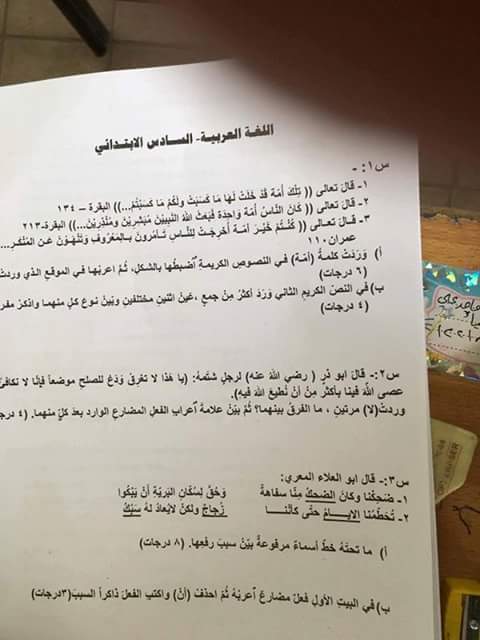 اللغة العربية- السادس الابتدائي
س١: -
١- قال تعالى (( تِلْكَ أُمة قَدْ خَلَتْ لَهَا مَا كَسَبَتْ وَلَكُم مَا كَسَبْتُم...)) البقرة – ١٣٤
٢- قال تعالى (( كَانَ النَّاسُ أُمة وَاحِدَة فَبَعَثَ اللهُ النَّبِيِّينَ مُبَشِّرِينَ وَمُنْذِرِينَ...)) البقرة-٢١٣
٣- قال تعالى (( كُنْتُمْ خَيْرَ أمة أُخْرِجَتْ لِلنَّاسِ تَأمرُونَ بِالمَعْرُوفِ وَتَنْهَوْنَ عَنِ المُنْكَرِ...
عمران ١١٠
أ) وَرَدَتْ كلمةُ (أمة) في النصوصِ الكريمةِ اضبطْها بالشكلِ، ثُمَّ اعربْها في الموقعِ الذي وردتْ
(٦ درجات)
ب) في النصّ الكريمِ الثاني وَرَدَ أكثرُ مِنْ جمعٍ ،عَينْ اثنينِ مختلفينِ وبَينْ نوعَ كلٍ منهما واذكرْ
(٤ درجات)
س٢:- قالَ ابو ذرٍ ( رضي اللهُ عنه) لرجلٍ شتمهُ: (يا هذا لا تغرق وَدَعْ للصلحِ موضعاً فإنّا لا نكافئُ
عصى اللهَ فينا بأكثرَ مِنْ أنْ نُطيعَ اللهَ فيهِ).
وردتْ(لا) مرتينِ ، ما الفرقُ بينهما؟ ثُمَّ بيّنْ علامةَ اعرابِ الفعلِ المضارعِ الواردِ بعدَ كلٍ منهما. (٤
س٣:- قال ابو العلاء المعري:
١- ضَحِكْنا وكانَ الضحكُ مِنّا سفاهةً وَحُقَّ لِسُكانِ البَريّةِ أنْ يَبْكُوا
٢- تُحَطِّمُنا الايامُ حتّى كأنّنا زجاجٌ ولكنْ لايُعادُ لهُ سَبْكُ
أ) ما تحتَهُ خطٌ أسماءٌ مرفوعةٌ بيّنْ سببَ رفعِها. (٨ درجات)
ب) في البيتِ الأولِ فعلٌ مضارعٌ أعربْهُ ثُمّ احذفْ (أنْ) واكتبِ الفعلَ ذاكراً السببَ(٣درجات)